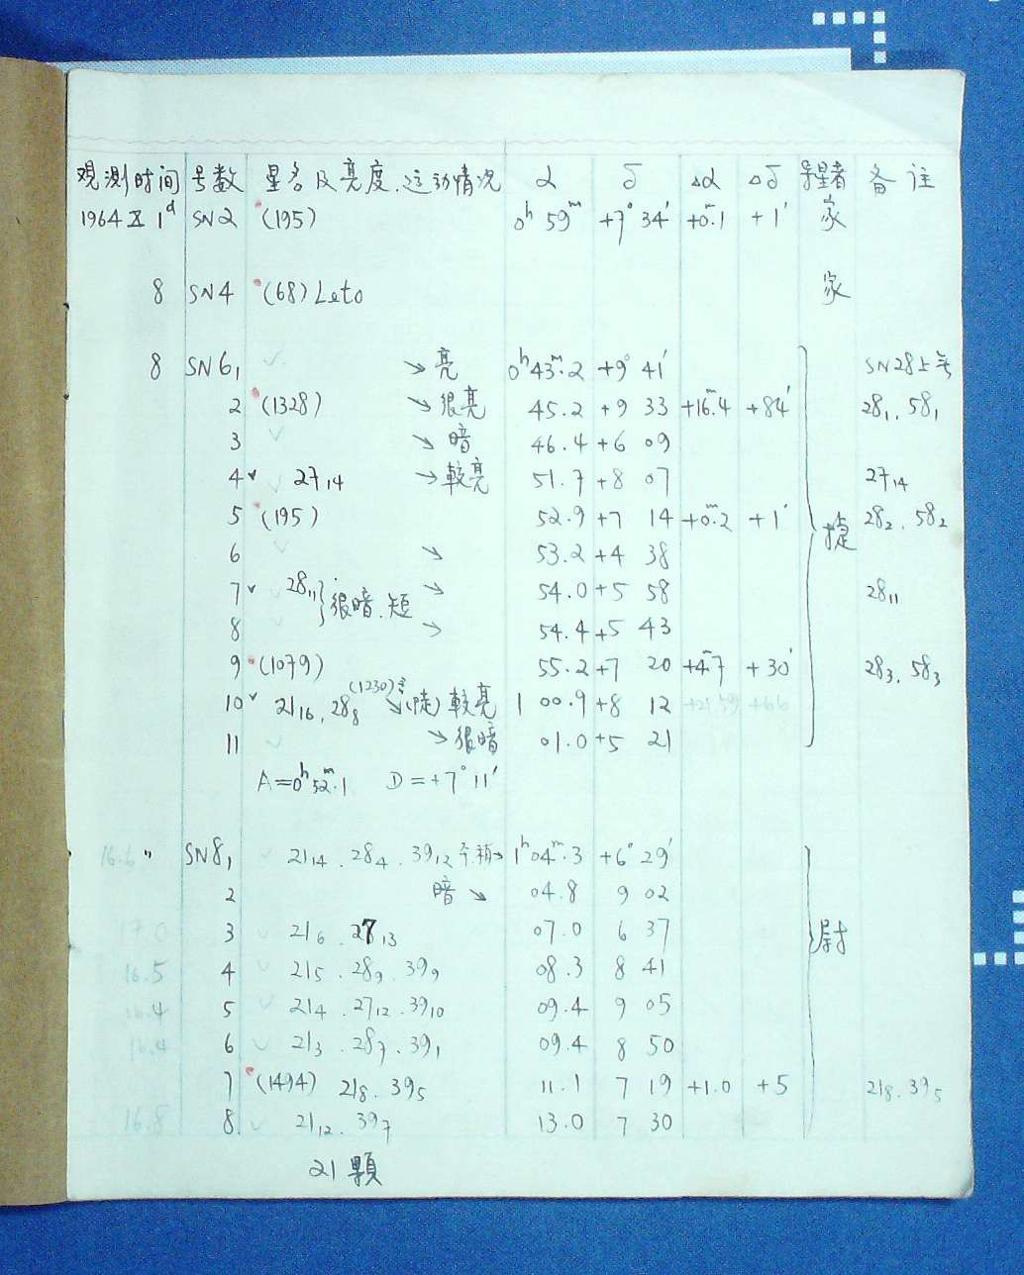 观测时间 号数 星名及亮度.运动情况 α δ Δα Δδ 寻星者 备注
1964 X 1ᵈ SN2 (195) 0ʰ 59ᵐ +7° 34′ +0ᵐ.1 +1′ 家
8 SN4 (68) Leto 家
8 SN6₁ → 亮 0ʰ 43ᵐ.2 +9° 41′ SN28上
2 (1328) → 很亮 45.2 +9 33 +16ᵐ.4 +84′ 28₁, 58₁
3 → 暗 46.4 +6 09
4 27₁₄ → 較亮 51.7 +8 07 27₁₄
5 (195) 52.9 +7 14 +0ᵐ.2 +1′ 捷 28₂, 58₂
6 → 53.2 +4 38
7 28₁₁ } 很暗.短 → 54.0 +5 58 28₁₁
8 → 54.4 +5 43
9 (1079) 55.2 +7 20 +4ᵐ.7 +30′ 28₃, 58₃
10 21₁₆, 28₈ (1230)? ↘(陡) 較亮 1 00.9 +8 12
11 → 很暗 01.0 +5 21
A=0ʰ 52ᵐ.1 D=+7° 11′
16.6 〃 SN8₁ 21₁₄. 28₄. 39₁₂ → 1ʰ 04ᵐ.3 +6° 29′
2 暗 ↘ 04.8 9 02
17.0 3 21₆. 27₁₃ 07.0 6 37 尉
16.5 4 21₅. 28₉. 39₉ 08.3 8 41
16.4 5 21₄. 27₁₂. 39₁₀ 09.4 9 05
16.4 6 21₃. 28₇. 39₁ 09.4 8 50
7 (1494) 21₈. 39₅ 11.1 7 19 +1.0 +5 21₈. 39₅
16.8 8 21₁₂. 39₇ 13.0 7 30
21 顆